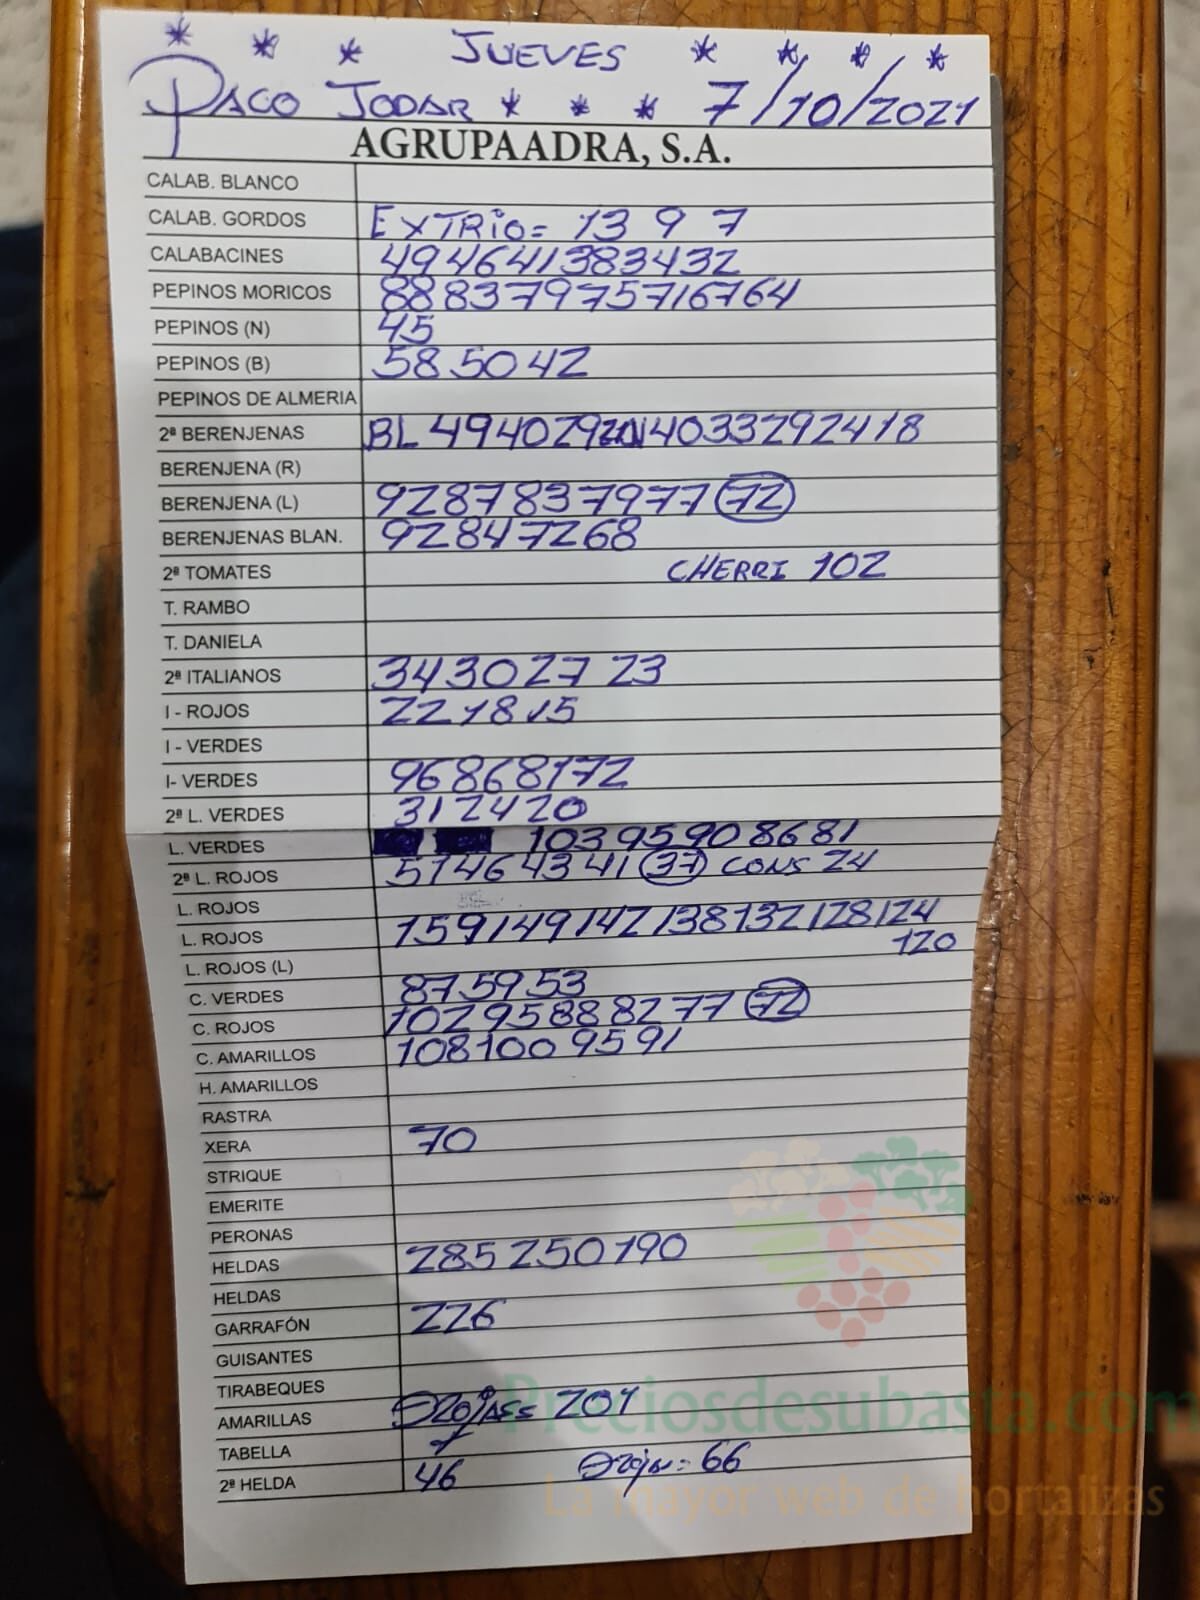 * * * JUEVES * * * *
PACO JODAR * * * 7/10/2021
AGRUPAADRA, S.A.
CALAB. BLANCO
CALAB. GORDOS EXTRIO= 13 9 7
CALABACINES 49 46 41 38 34 32
PEPINOS MORICOS 88 83 79 75 71 67 64
PEPINOS (N) 45
PEPINOS (B) 58 50 42
PEPINOS DE ALMERIA
2ª BERENJENAS BL 49 40 29 20 N 40 33 29 24 18
BERENJENA (R)
BERENJENA (L) 92 87 83 79 77 72
BERENJENAS BLAN. 92 84 72 68
2ª TOMATES CHERRI 102
T. RAMBO
T. DANIELA
2ª ITALIANOS 34 30 27 23
I - ROJOS 22 18 15
I - VERDES
I- VERDES 96 86 81 72
2ª L. VERDES 31 24 20
L. VERDES 103 95 90 86 81
2ª L. ROJOS 51 46 43 41 37 CONS 24
L. ROJOS
L. ROJOS 159 149 142 138 132 128 124
120
L. ROJOS (L)
C. VERDES 87 59 53
C. ROJOS 102 95 88 82 77 72
C. AMARILLOS 108 100 95 91
H. AMARILLOS
RASTRA
XERA 70
STRIQUE
EMERITE
PERONAS
HELDAS 285 250 190
HELDAS
GARRAFÓN 226
GUISANTES
TIRABEQUES
AMARILLAS 201
TABELLA
2ª HELDA 46 66
Preciosdesubasta.com
La mayor web de hortalizas